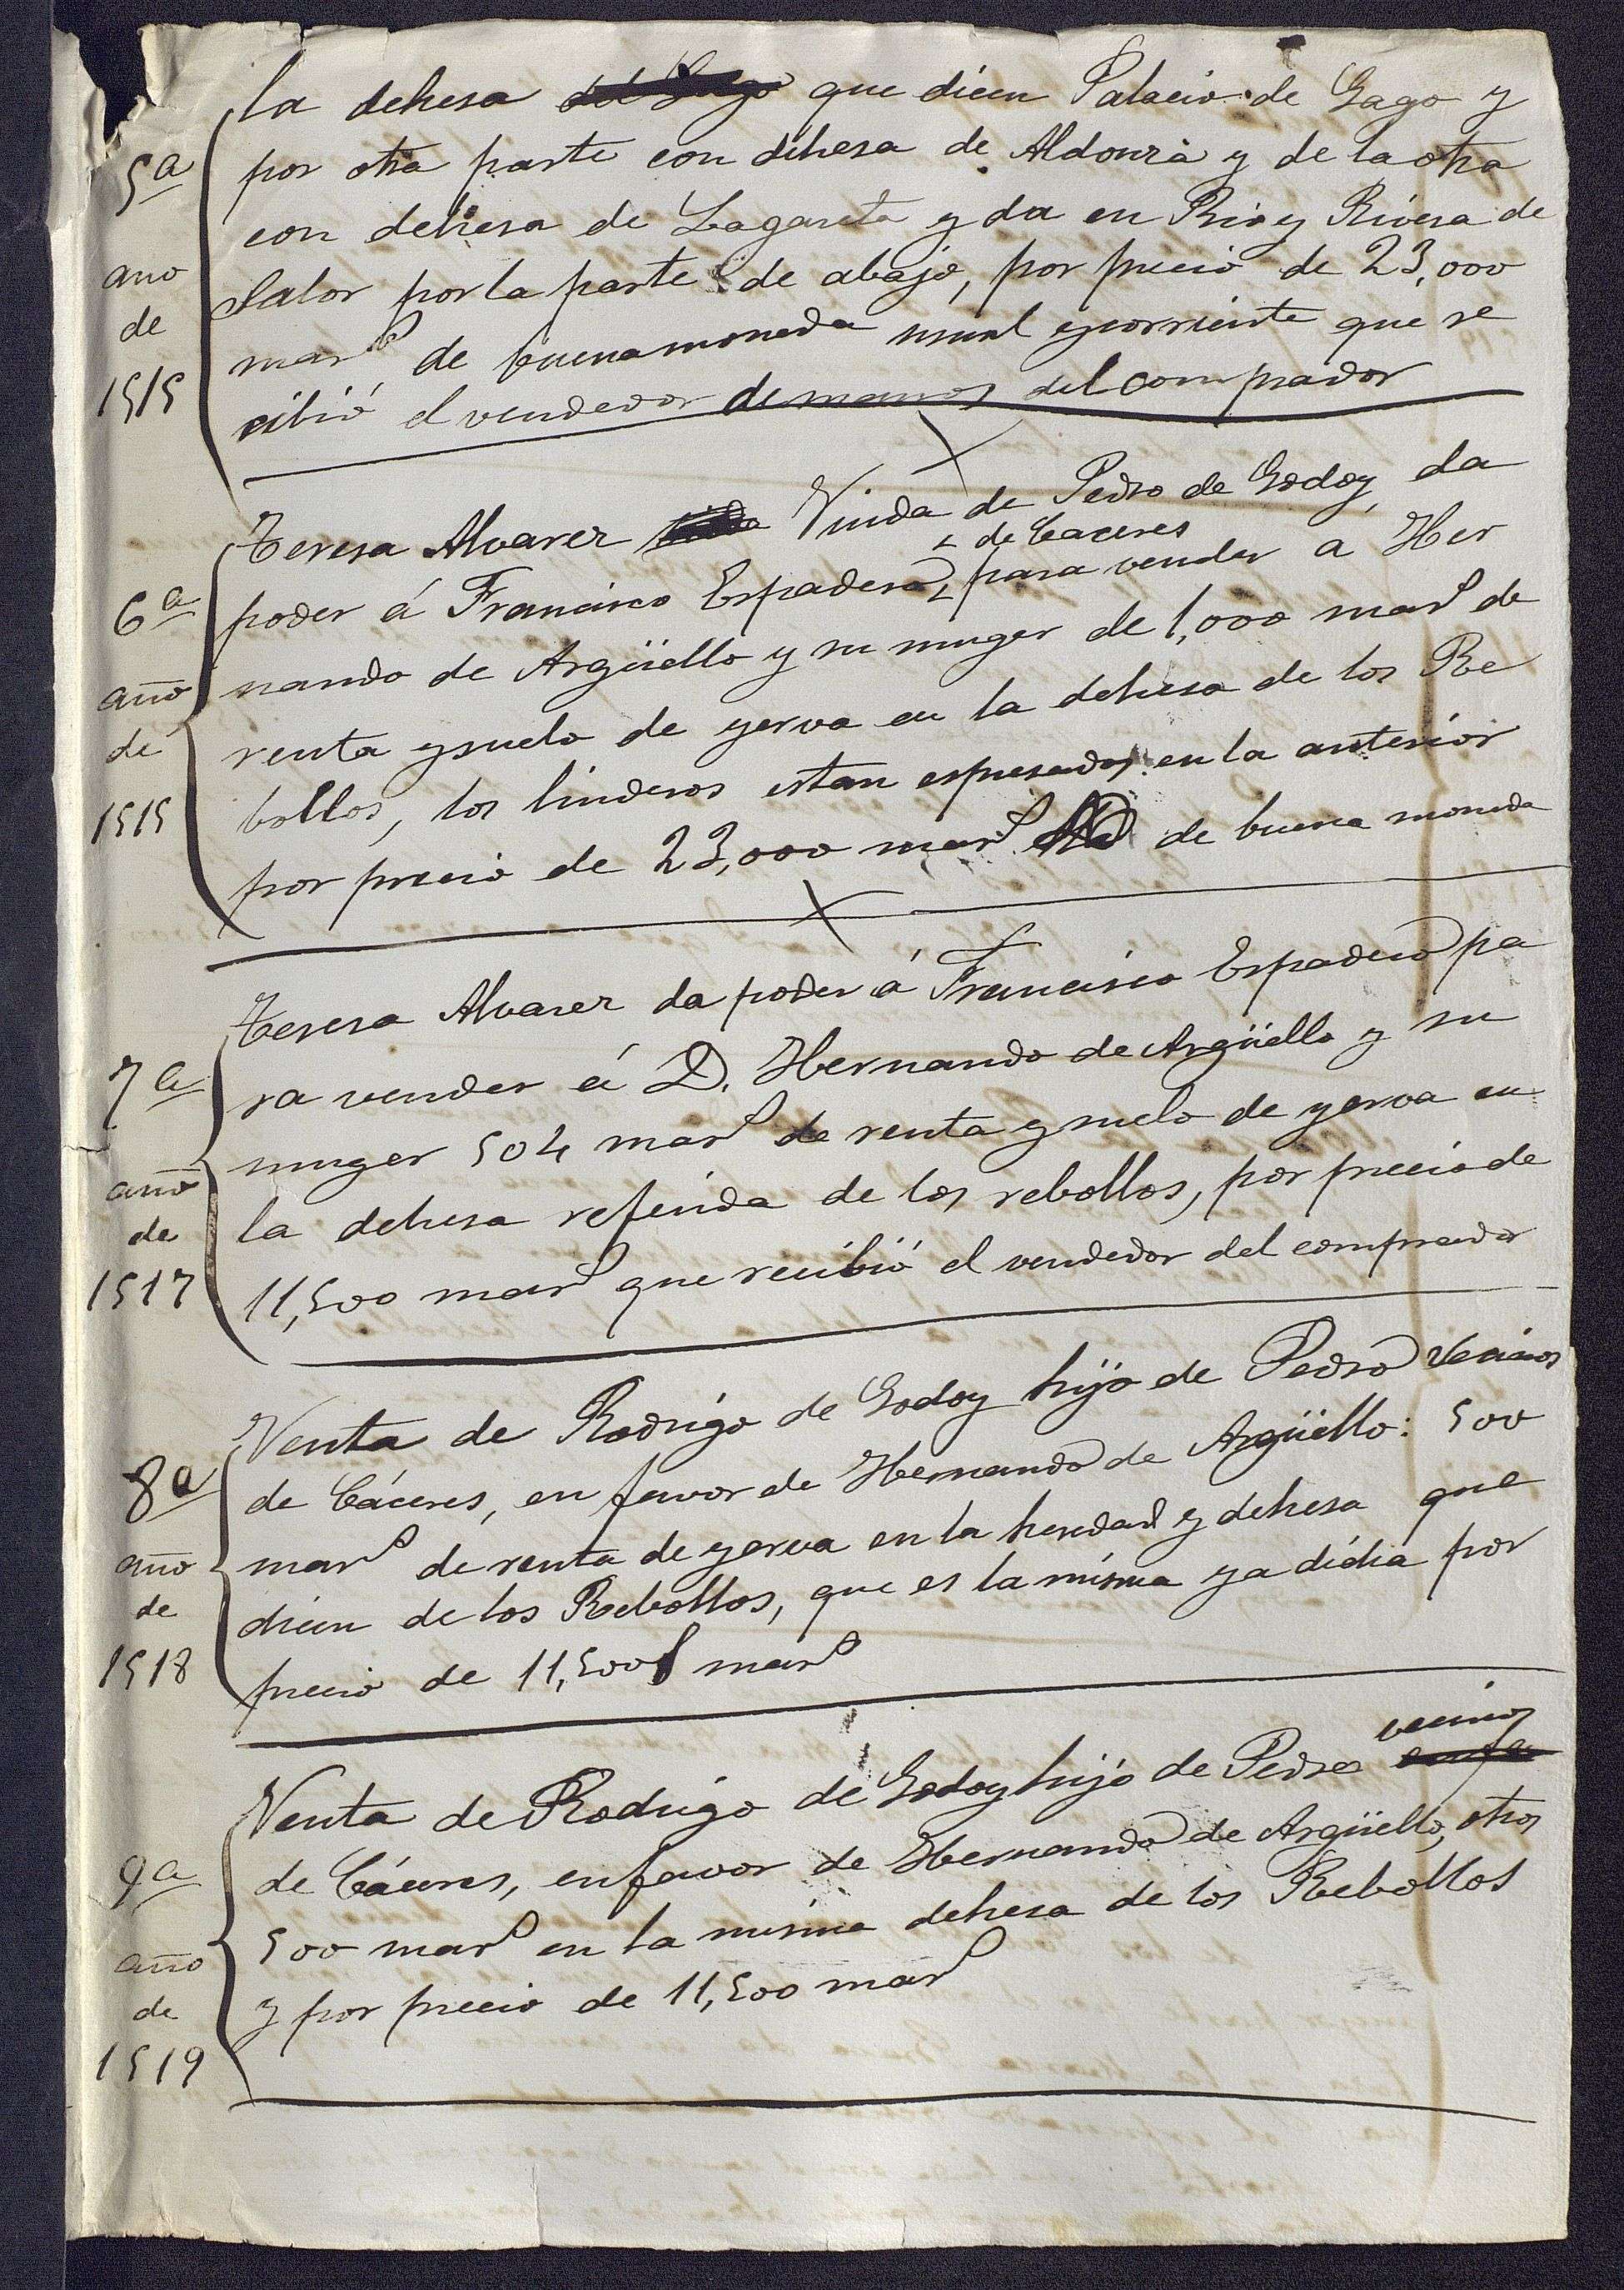 la dehesa que dicen Palacio de Gago y
5ª por otra parte con dehesa de Aldonza y de la otra
con dehesa de Lagareta y da en Rio y Rivera de
año Salor por la parte de abajo, por precio de 23,000
de marˢ de buena moneda usual y corriente que re
1515 cibió el vendedor de manos del comprador
Teresa Alvarez Viuda de Pedro de Godoy, da
de Caceres
6ª poder á Francisco Espadero, para vender a Her
nando de Argüello y su muger de 1,000 marˢ de
año renta y suelo de yerva en la dehesa de los Re
de
1515 bollos, los linderos estan espresados en la anterior
por precio de 23,000 marˢ de buena moneda
Teresa Alvarez da poder á Francisco Espadero pa
7ª ra vender á D. Hernando de Argüello y su
muger 504 marˢ de renta y suelo de yerva en
año
de la dehesa referida de los rebollos, por precio de
1517 11,500 marˢ que recibió el vendedor del comprador
Venta de Rodrigo de Godoy hijo de Pedro vecinos
8ª de Cáceres, en favor de Hernando de Argüello: 500
año marˢ de renta de yerva en la heredad y dehesa que
de dicen de los Rebollos, que es la misma ya dicha por
1518 precio de 11,500 marˢ
vecinos
Venta de Rodrigo de Godoy hijo de Pedro
9ª de Cáceres, en favor de Hernando de Argüello, otros
año 500 marˢ en la misma dehesa de los Rebollos
de y por precio de 11,500 marˢ
1519